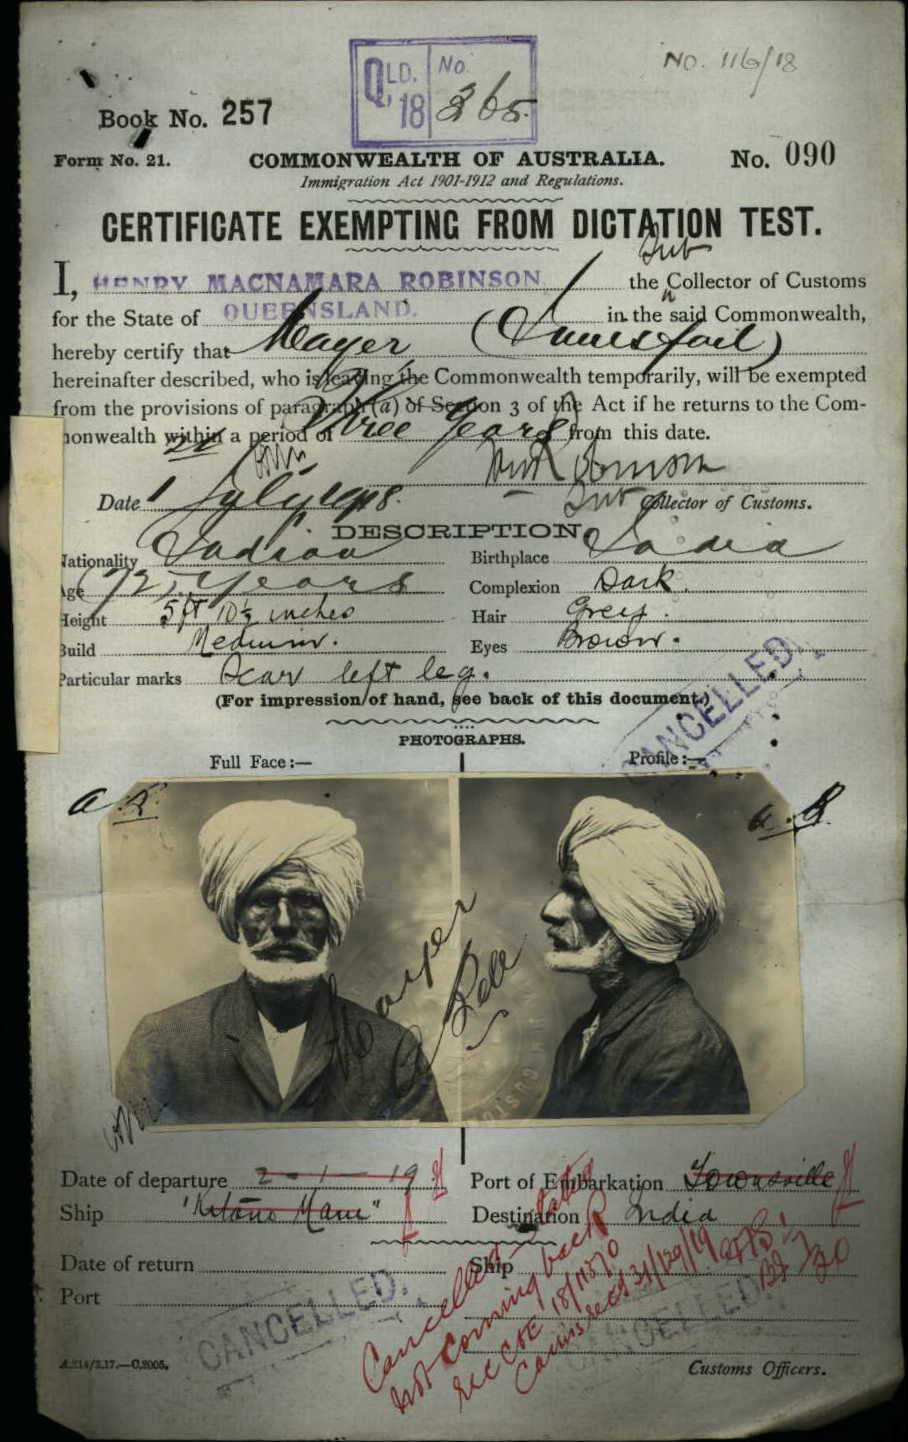 No. 116/18
QLD. 18 No. 365.
Book No. 257
Form No. 21. COMMONWEALTH OF AUSTRALIA. No. 090
Immigration Act 1901-1912 and Regulations.
CERTIFICATE EXEMPTING FROM DICTATION TEST.
Sub
I, HENRY MACNAMARA ROBINSON the Collector of Customs
for the State of QUEENSLAND. in the said Commonwealth,
hereby certify that (Innisfail)
hereinafter described, who is leaving the Commonwealth temporarily, will be exempted
from the provisions of paragraph (a) of Section 3 of the Act if he returns to the Com-
monwealth within a period of Three Years from this date.
Date 1 July 1918. Sub Collector of Customs.
DESCRIPTION
Nationality Indian Birthplace India
Age (72) Years Complexion Dark.
Height 5ft 10½ inches Hair Grey.
Build Medium. Eyes Brown.
Particular marks Scar left leg.
(For impression of hand, see back of this document.)
CANCELLED.
PHOTOGRAPHS.
Full Face:— Profile:—
Date of departure 2-1-19 Port of Embarkation Townsville
Ship Destination India
Date of return Ship
Port
CANCELLED.
CANCELLED.
Cancelled
Not Coming back
A.214/3.17.—C.2005. Customs Officers.